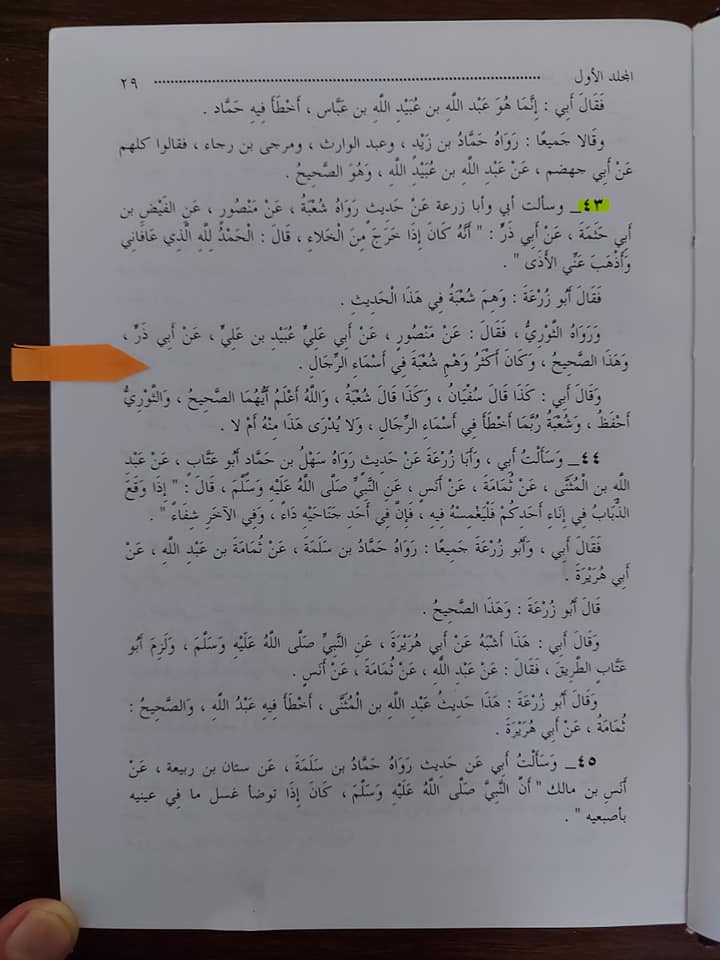 المجلد الأول ................................................................ ٢٩
فَقَالَ أَبِي : إِنَّمَا هُوَ عَبْد اللهِ بن عُبَيْدِ اللهِ بن عَبَّاس ، أَخْطَأَ فِيهِ حَمَّاد .
وَقَالا جَمِيعًا : رَوَاهُ حَمَّادُ بن زَيْد ، وعبد الوارث ، ومرجى بن رجاء ، فقالوا كلهم
عَنْ أبي جهضم ، عَنْ عَبْد الله بن عُبَيْدِ اللهِ ، وَهُوَ الصَّحِيحُ .
٤٣_ وسألت أبي وأبا زرعة عَنْ حَديث رَوَاهُ شُعْبَةُ ، عَنْ مَنْصُورٍ ، عَنِ الفَيْضِ بن
أَبِي حَثَمَةَ ، عَنْ أَبِي ذَرٍّ : " أَنَّهُ كَانَ إِذَا خَرَجَ مِنَ الْخَلاءِ ، قَالَ : الْحَمْدُ لِلَّهِ الَّذِي عَافَانِي
وَأَذْهَبَ عَنِّي الأَذَى " .
فَقَالَ أَبُو زُرْعَةَ : وَهِمَ شُعْبَةُ فِي هَذَا الْحَدِيثِ .
وَرَوَاهُ الثَّوْرِيُّ ، فَقَالَ : عَنْ مَنْصُورٍ ، عَنْ أَبِي عَلِيٍّ عُبَيْدِ بن عَلِيٍّ ، عَنْ أَبِي ذَرٍّ ،
وَهَذَا الصَّحِيحُ ، وَكَانَ أَكْثَرُ وَهْمِ شُعْبَةَ فِي أَسْمَاءِ الرِّجَالِ .
وَقَالَ أَبِي : كَذَا قَالَ سُفْيَانُ ، وَكَذَا قَالَ شُعْبَةُ ، وَاللهُ أَعْلَمُ أَيُّهُمَا الصَّحِيحُ ، وَالثَّوْرِيُّ
أَحْفَظُ ، وَشُعْبَةُ رُبَّمَا أَخْطَأَ فِي أَسْمَاءِ الرِّجَالِ ، وَلا يُدْرَى هَذَا مِنْهُ أَمْ لا .
٤٤_ وَسَأَلْتُ أَبِي ، وَأَبَا زُرْعَةَ عَنْ حَدِيثِ رَوَاهُ سَهْلُ بن حَمَّاد أَبُو عَتَّابٍ ، عَنْ عَبْد
اللهِ بن الْمُثَنَّى ، عَنْ ثُمَامَةَ ، عَنْ أَنَسٍ ، عَنِ النَّبِيِّ صَلَّى اللهُ عَلَيْهِ وَسَلَّمَ ، قَالَ : " إِذَا وَقَعَ
الذُّبَابُ فِي إِنَاءِ أَحَدِكُمْ فَلْيَغْمِسْهُ فِيهِ ، فَإِنَّ فِي أَحَدِ جَنَاحَيْهِ دَاءً ، وَفِي الآخَرِ شِفَاءً " .
فَقَالَ أَبِي ، وَأَبُو زُرْعَةَ جَمِيعًا : رَوَاهُ حَمَّادُ بن سَلَمَةَ ، عَنْ ثُمَامَةَ بن عَبْدِ اللهِ ، عَنْ
أَبِي هُرَيْرَةَ .
قَالَ أَبُو زُرْعَةَ : وَهَذَا الصَّحِيحُ .
وَقَالَ أَبِي : هَذَا أَشْبَهُ عَنْ أَبِي هُرَيْرَةَ ، عَنِ النَّبِيِّ صَلَّى اللهُ عَلَيْهِ وَسَلَّمَ ، وَلَزِمَ أَبُو
عَتَّابٍ الطَّرِيقَ ، فَقَالَ : عَنْ عَبْدِ اللهِ ، عَنْ ثُمَامَةَ ، عَنْ أَنَسٍ .
وَقَالَ أَبُو زُرْعَةَ : هَذَا حَدِيثُ عَبْدِ اللهِ بن الْمُثَنَّى ، أَخْطَأَ فِيهِ عَبْدُ اللهِ ، وَالصَّحِيحُ :
ثُمَامَةُ ، عَنْ أَبِي هُرَيْرَةَ .
٤٥_ وَسَأَلْتُ أَبِي عَن حَدِيثِ رَوَاهُ حَمَّادُ بن سَلَمَةَ ، عَن ستان بن ربيعة ، عَنْ
أَنَسِ بن مالك " أَنَّ النَّبِيَّ صَلَّى اللهُ عَلَيْهِ وَسَلَّمَ ، كَانَ إِذَا توضأ غسل ما فِي عينيه
بأصبعيه " .